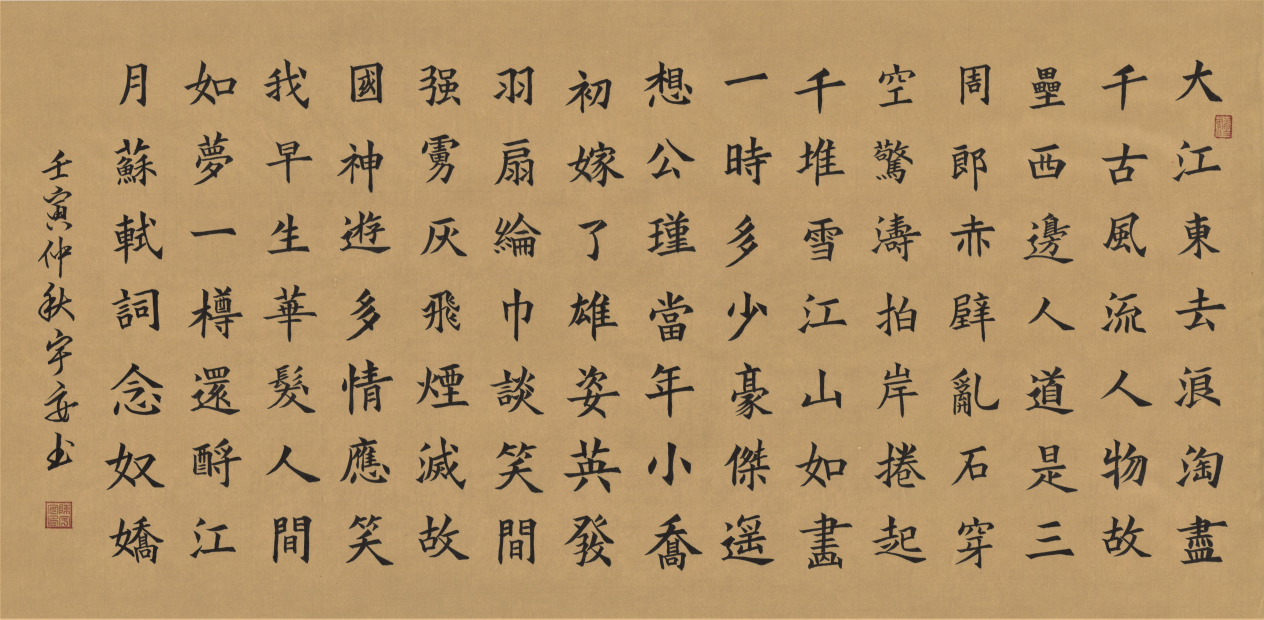 大江東去浪淘盡
千古風流人物故
壘西邊人道是三
周郎赤壁亂石穿
空驚濤拍岸捲起
千堆雪江山如畫
一時多少豪傑遥
想公瑾當年小喬
初嫁了雄姿英發
羽扇綸巾談笑間
强虜灰飛煙滅故
國神遊多情應笑
我早生華髮人間
如夢一樽還酹江
月蘇軾詞念奴嬌
壬寅仲秋宇安书